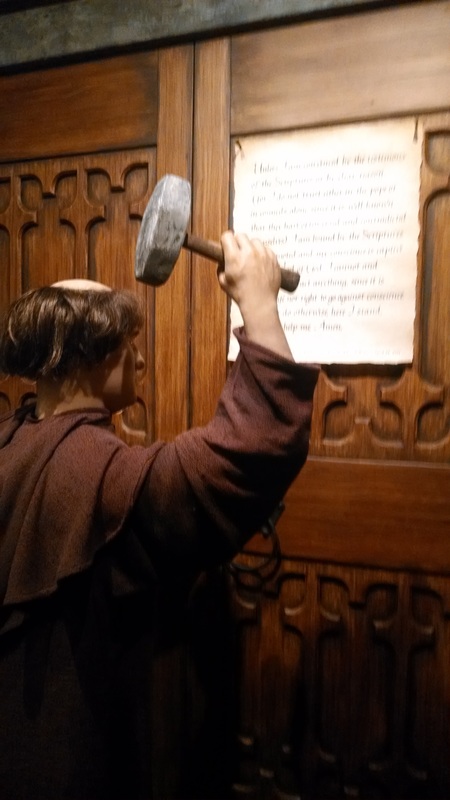 Unless I am convinced by the testimony
of the Scriptures or by clear reason
for I do not trust either in the pope or
in councils alone, since it is well known
that they have often erred and contradicted
I am bound by the Scriptures
quoted and my conscience is captive
God. I cannot and
not anything, since it is
not right to go against conscience
do otherwise here I stand
help me. Amen.